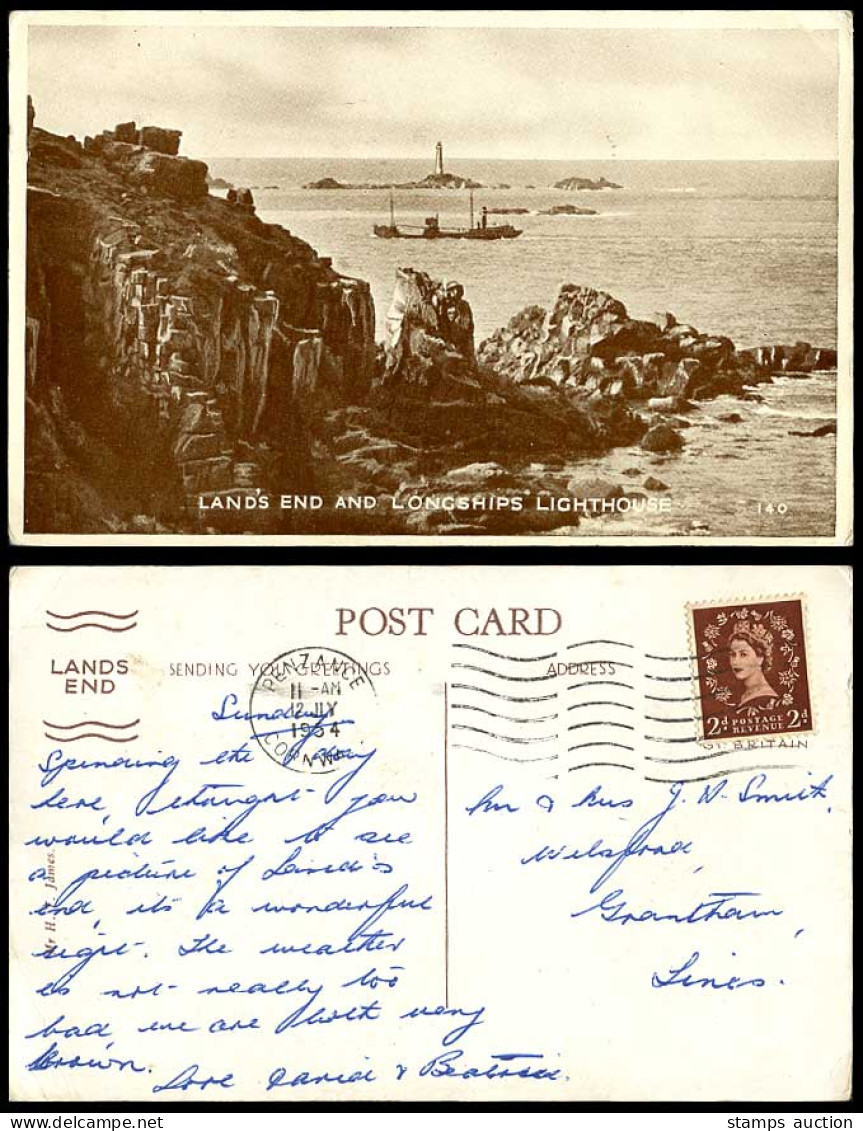 LAND'S END AND LONGSHIPS LIGHTHOUSE 140
POST CARD
LANDS
END
SENDING YOU GREETINGS
ADDRESS
PENZANCE
11 - AM
12 JLY
1954
CORNWALL
2D POSTAGE 2D
REVENUE
GT. BRITAIN
Sunday
Spending the day
here, thought you
would like to see
a picture of Land's
end, it's a wonderful
sight. The weather
is not really too
bad we are both very
brown.
Love David & Beatrice.
Mr & Mrs J. Smith,
Welsford,
Grantham,
Lincs.
James.
stamps auction